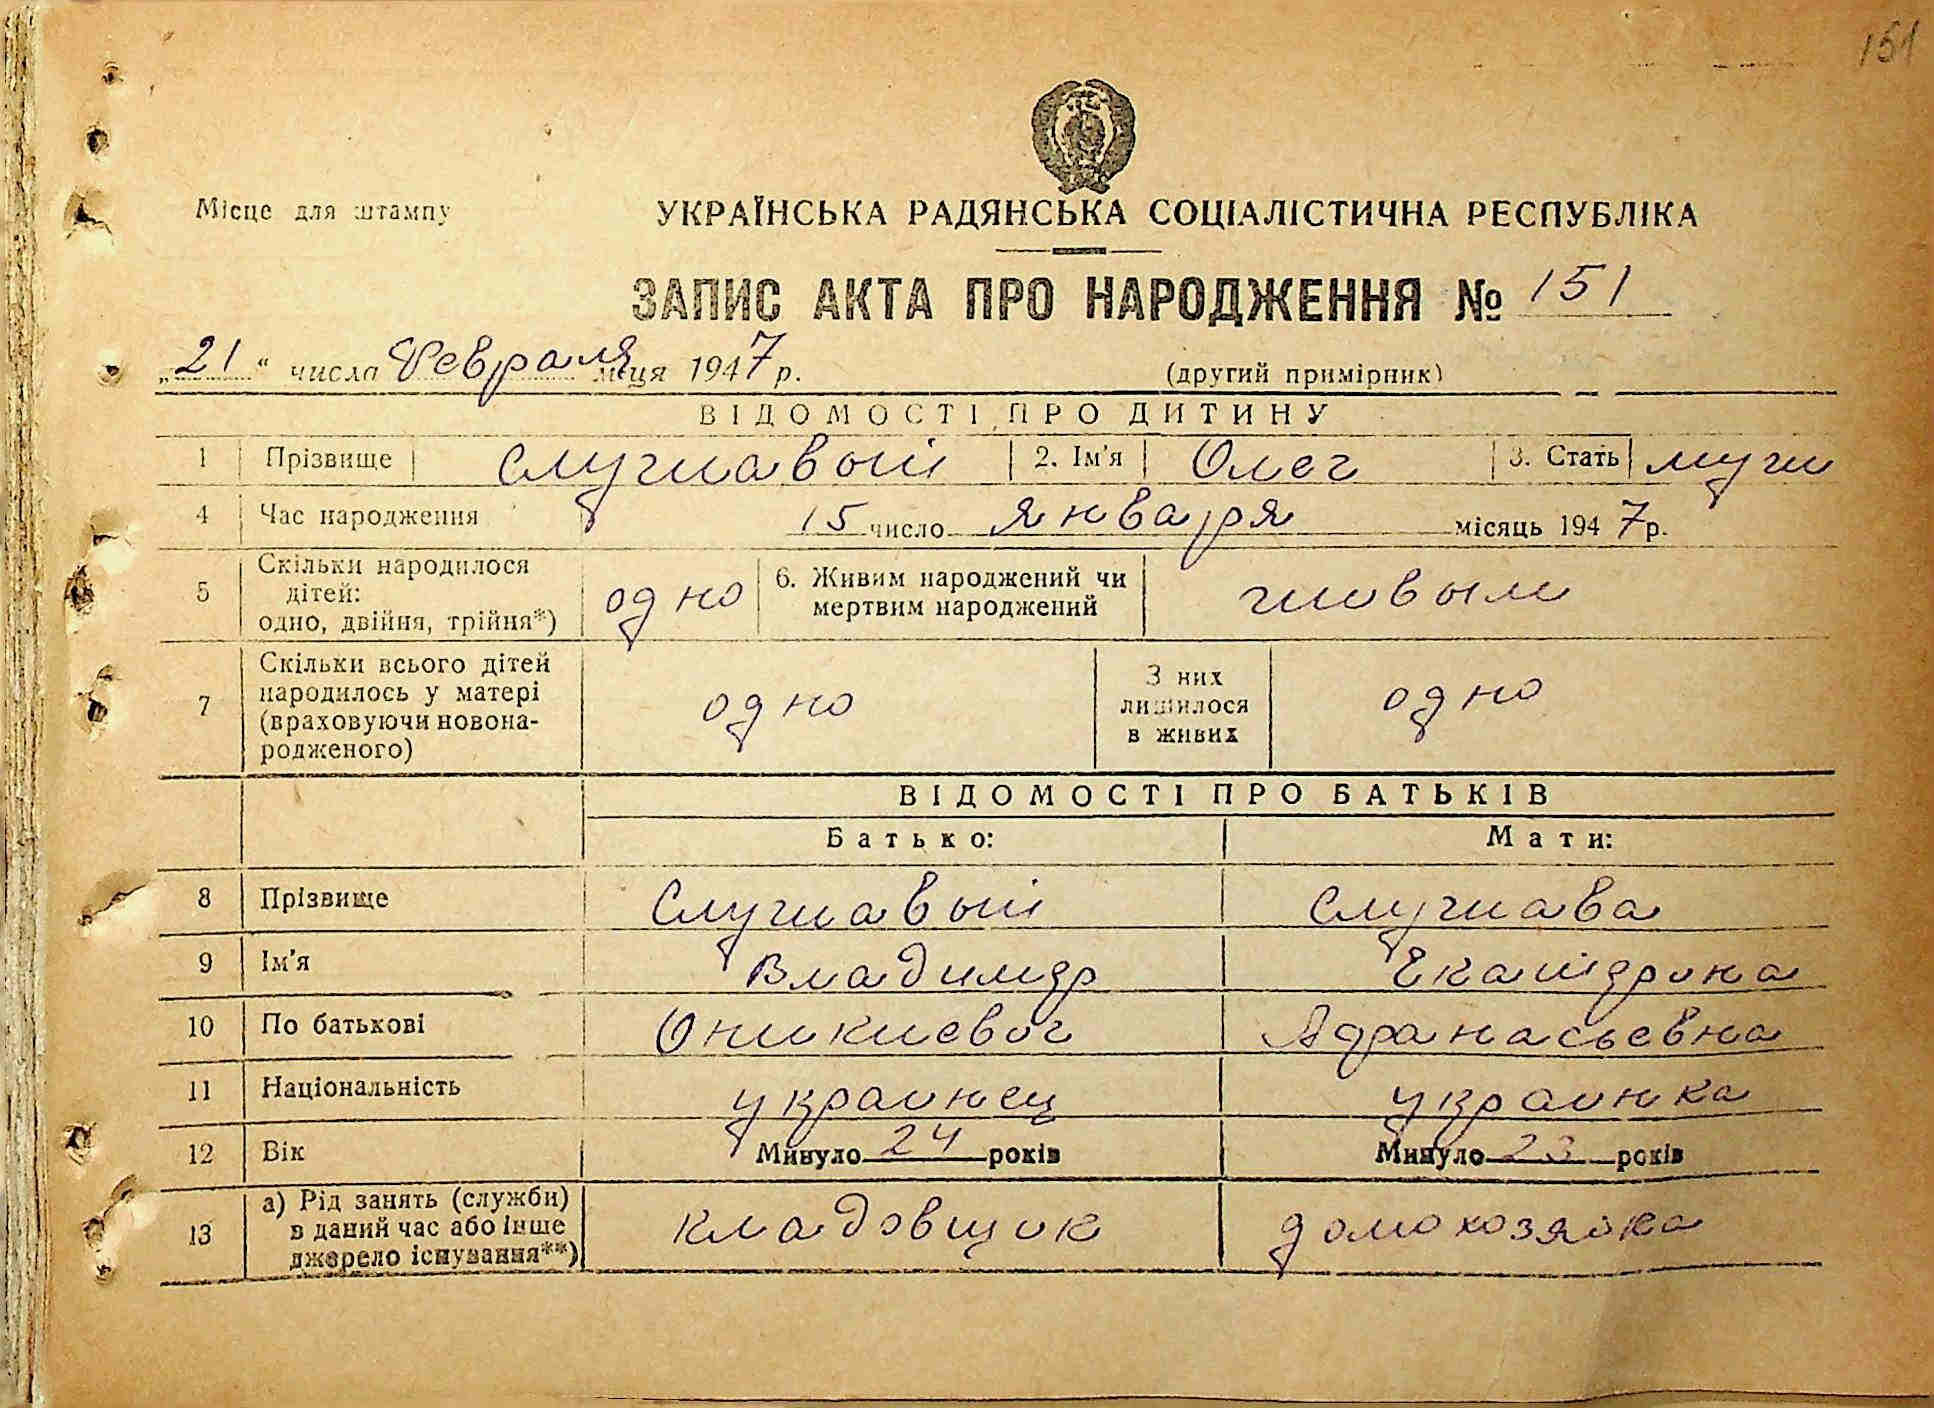 151
Місце для штампу
УКРАЇНСЬКА РАДЯНСЬКА СОЦІАЛІСТИЧНА РЕСПУБЛІКА
ЗАПИС АКТА ПРО НАРОДЖЕННЯ № 151
„21“ числа Февраля м-ця 1947 р.
(другий примірник)
ВІДОМОСТІ ПРО ДИТИНУ
1 Прізвище Служавый 2. Ім'я Олег 3. Стать муж
4 Час народження 15 число января місяць 1947 р.
5 Скільки народилося дітей: одно, двійня, трійня*) одно 6. Живим народжений чи мертвим народжений живым
7 Скільки всього дітей народилось у матері (враховуючи новона-родженого) одно З них лишилося в живих одно
ВІДОМОСТІ ПРО БАТЬКІВ
Батько: Мати:
8 Прізвище Служавый Служава
9 Ім'я Владимир Екатерина
10 По батькові Оникиевич Афанасьевна
11 Національність украинец украинка
12 Вік Минуло 24 років Минуло 23 років
13 а) Рід занять (служби) в даний час або інше джерело існування**) кладовщик домохозяйка